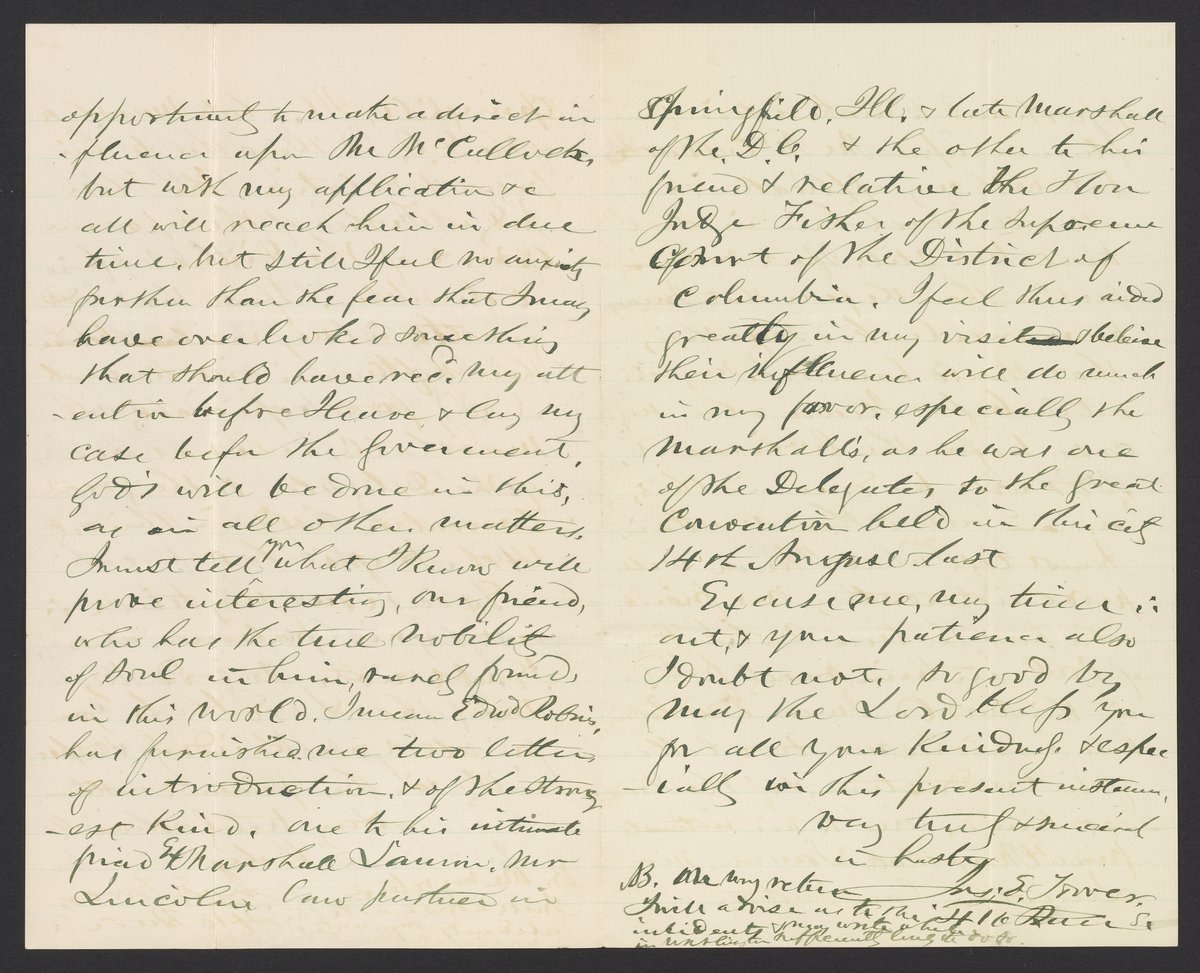 opportunity to make a direct in
-fluence upon Mr McCulloch,
but with my application &c
all will reach him in due
time, but still I feel no anxiety
further than the fear that I may
have overlooked something
that should have recd. my att
-ention before I leave & lay my
case before the Goverment,
God's will be done in this,
as in all other matters.
I must tell you what I know will
prove interesting, our friend,
who has the true nobility
of soul in him, rarely found,
in this world. I mean Edwd Robins,
has furnished me two letters
of introduction, & of the strong
-est kind. one to his intimate
friend Ex Marshall Lamon, Mr
Lincolns law partner in
Springfield, Ill. & late Marshall
of the D.C. & the other to his
friend & relative the Hon
Judge Fisher of the Supreme
Court of the District of
Columbia. I feel thus aided
greatly in my visit & beleive
their influence will do much
in my favor, especially the
Marshall's, as he was one
of the Delegates to the great
Convention held in this city
14th August last
Excuse me, my time is
out, & your patience also
I doubt not. so good by
may the Lord bless you
for all your kindness & espec
-ially in this present instance,
very truly & sincerely
in haste
Jno. E.
NB. On my return
I will advise as to the
incidents & may write when
in Washington sufficiently long to do so.